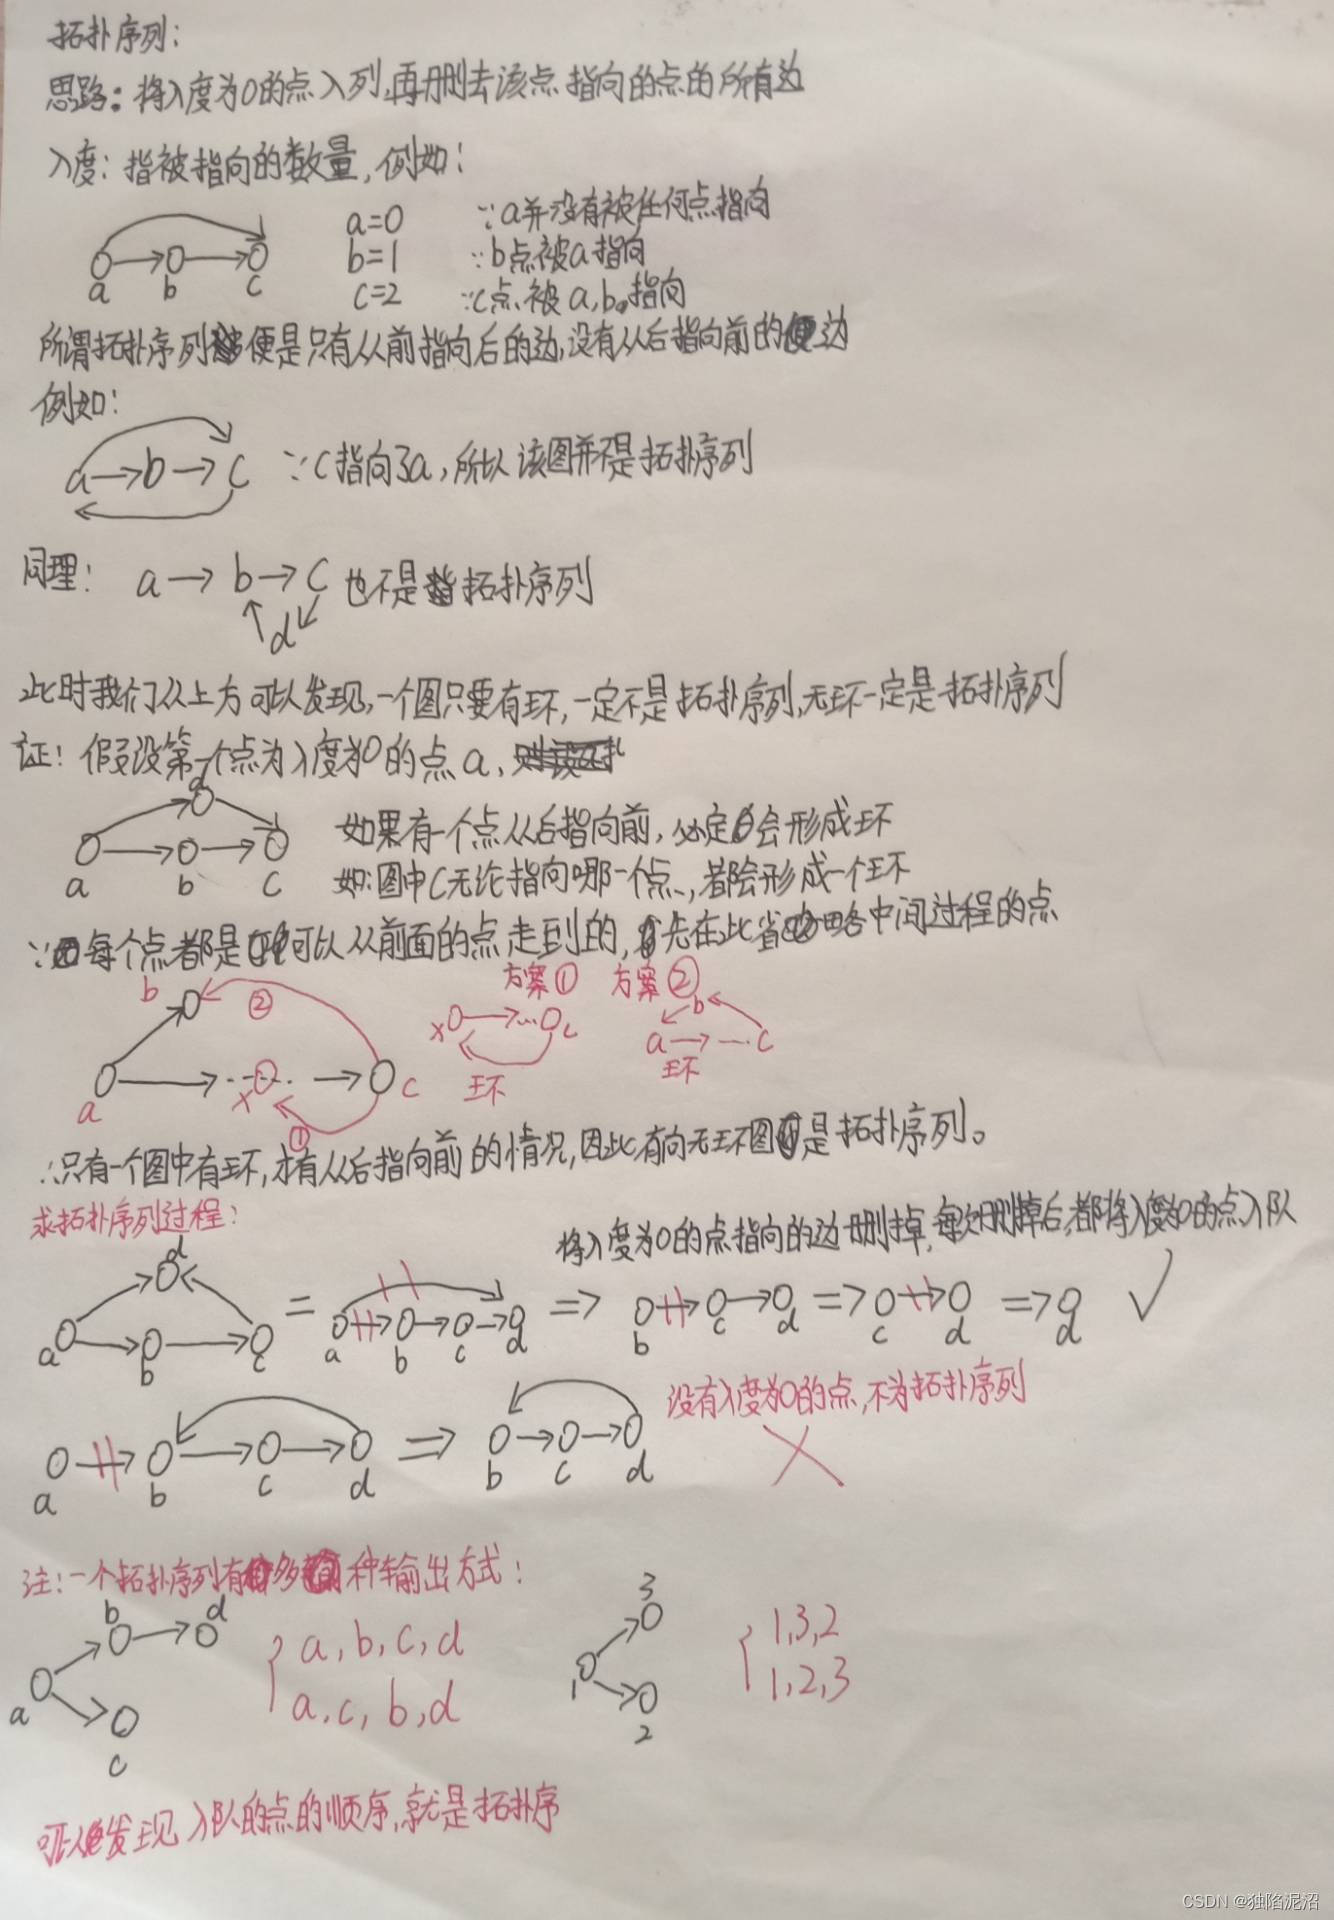 拓扑序列:
思路:将入度为0的点入列,再删去该点指向的点的所有边
入度:指被指向的数量,例如:
a=0 ∵a并没有被任何点指向
b=1 ∵b点被a指向
c=2 ∵c点被a,b指向
a b c
所谓拓扑序列便是只有从前指向后的边,没有从后指向前的边
例如:
a→b→c ∵c指向了a,所以该图并不是拓扑序列
同理: a→b→c 也不是拓扑序列
d
此时我们从上方可以发现,一个图只要有环,一定不是拓扑序列,无环一定是拓扑序列
证:假设第一个点为入度为0的点a,
d
a b c
如果有一个点从后指向前,必定会形成环
如:图中c无论指向哪一个点,都会形成一个环
∵每个点都是可以从前面的点走到的,先在此省略中间过程的点
b ② 方案① 方案②
x→...c b
a→...c
环 环
a x c
①
∴只有一个图中有环,才有从后指向前的情况,因此有向无环图是拓扑序列。
求拓扑序列过程:
将入度为0的点指向的边删掉,每次删掉后,都将入度为0的点入队
d
a b c = a b c d => b c d => c d => d ✓
没有入度为0的点,不为拓扑序列
a b c d => b c d ×
注:一个拓扑序列有多种输出方式:
b d 3
a,b,c,d 1,3,2
a 1
a,c,b,d 1,2,3
c 2
可以发现入队的点的顺序,就是拓扑序
CSDN @独陷泥沼